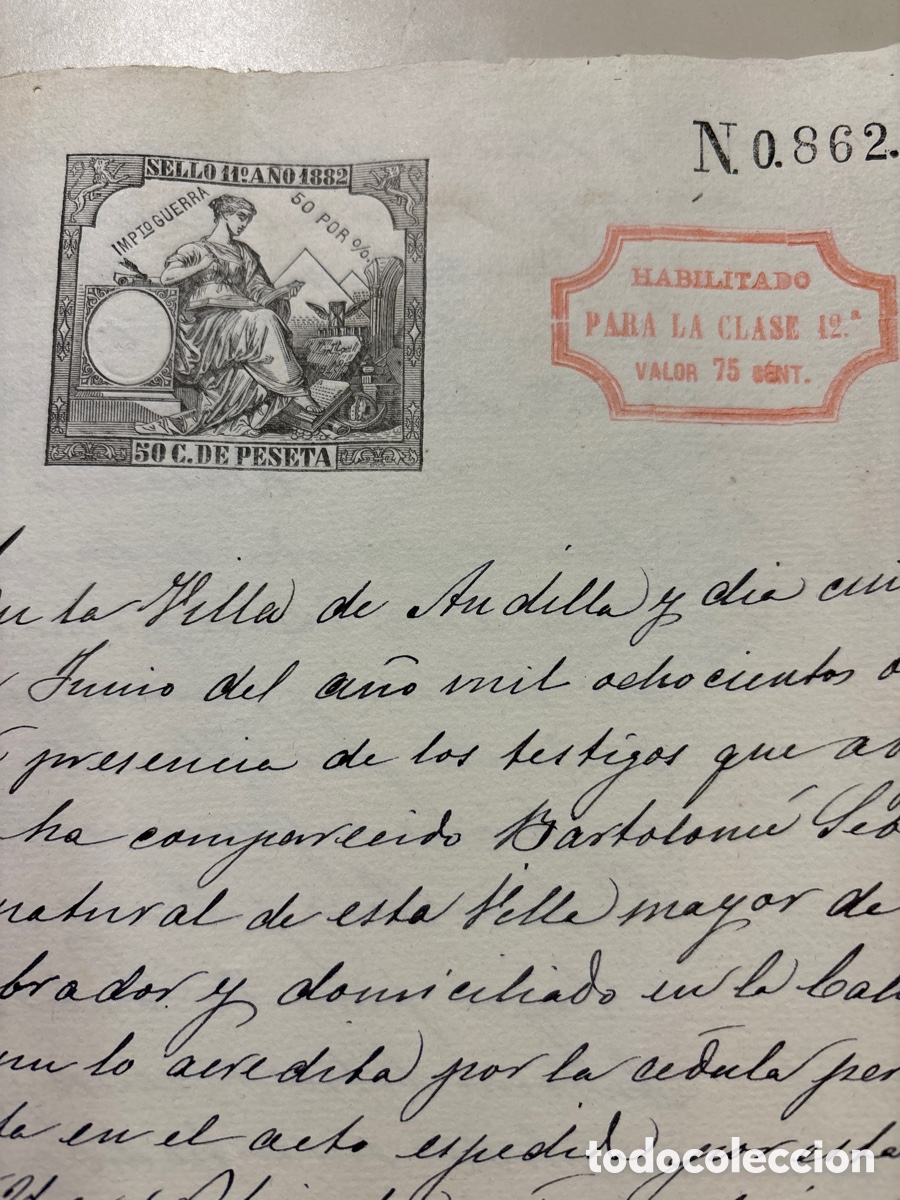 N. 0.862.
SELLO 11º AÑO 1882
IMPTO GUERRA 50 POR %
50 C. DE PESETA
HABILITADO
PARA LA CLASE 12.ª
VALOR 75 CÉNT.
la Villa de Andilla y dia
Junio del año mil ochocientos
presencia de los testigos que
ha comparecido Bartolomé
natural de esta Villa mayor de
brador y domiciliado en la
lo acredita por la cédula per
en el acto espedida por esta
todocoleccion